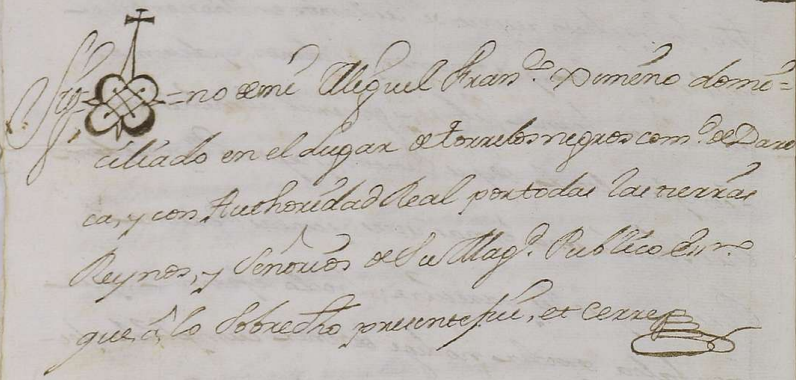 Sig=no de mi Miguel Fran.co Ximeno domi=
ciliado en el Lugar de torrelosnegros com.d de Daro
ca, y con Authoridad Real por todas las tierras
Reynos, y Señorios de Su Mag.d Publico Ess.no
que â lo Sobredho presente fui, et cerre